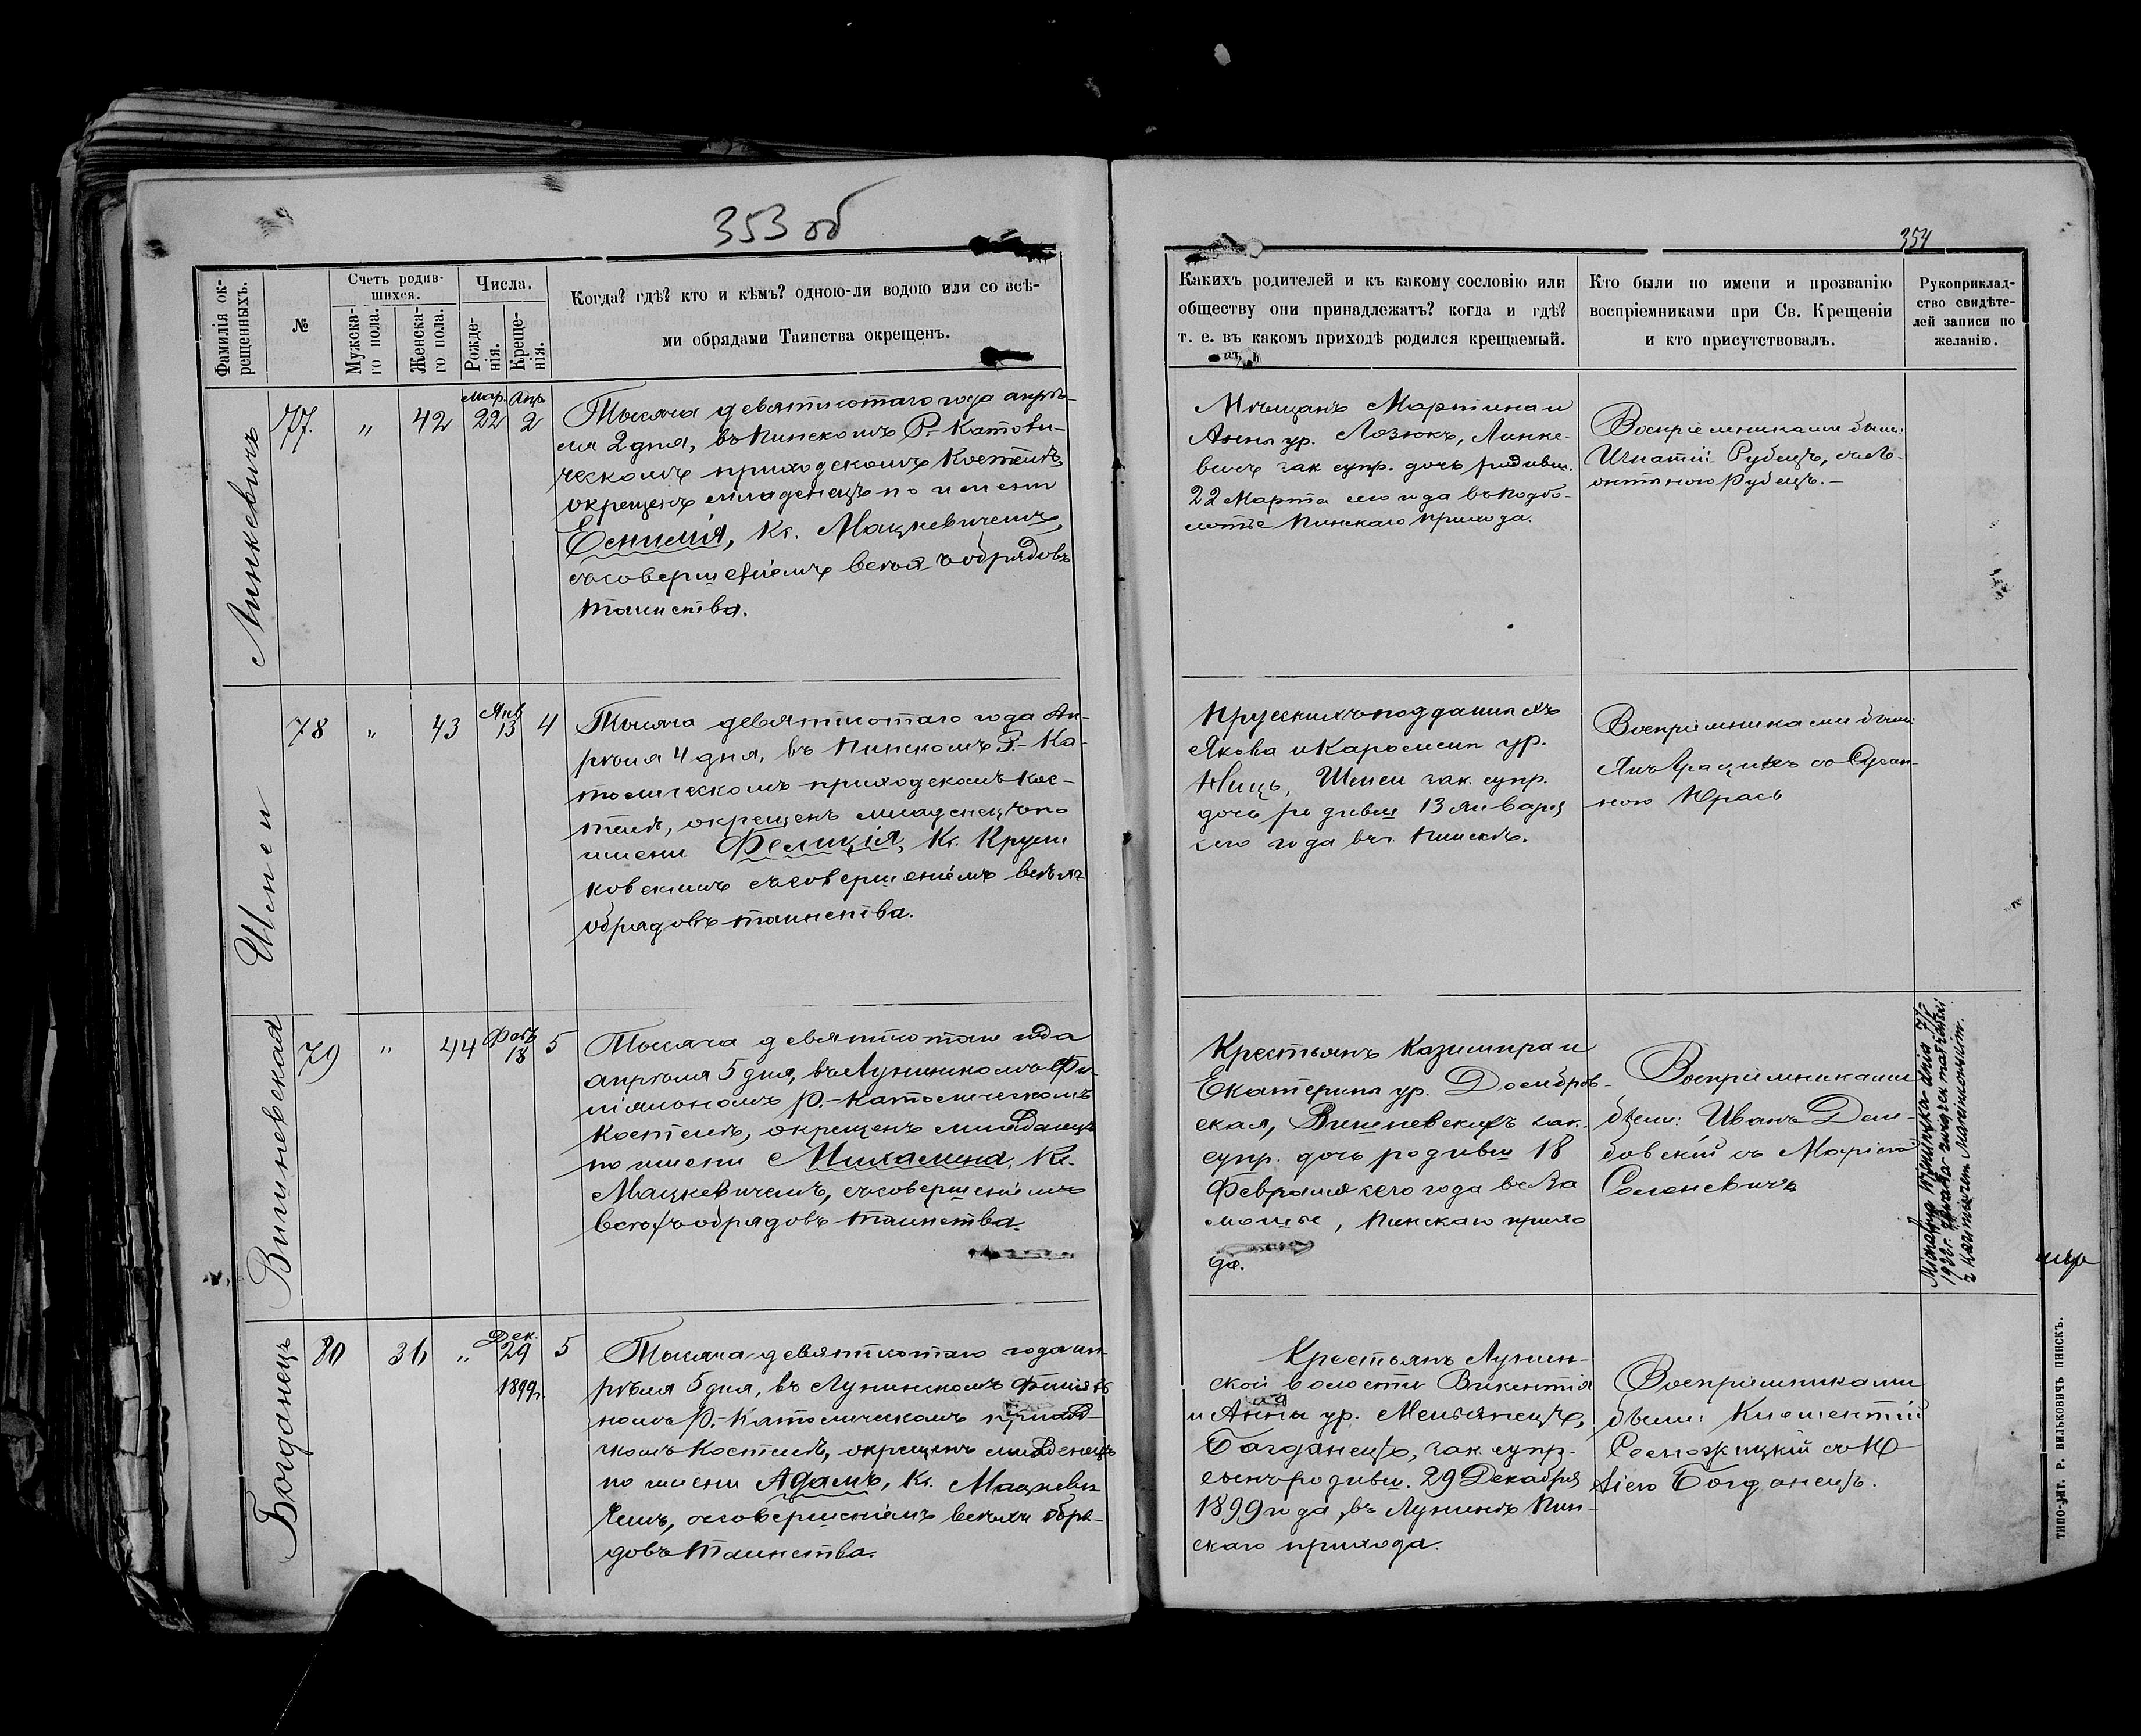 353 об
354
Фамилія ок-
рещенныхъ.
№
Счетъ родив-
шихся.
Мужска-
го пола.
Женска-
го пола.
Числа.
Рожде-
нія.
Креще-
нія.
Когда? гдѣ? кто и кѣмъ? одною-ли водою или со всѣ-
ми обрядами Таинства окрещенъ.
Каких родителей и къ какому сословію или
обществу они принадлежатъ? когда и гдѣ?
т. е. въ какомъ приходѣ родился крещаемый.
Кто были по имени и прозванію
воспріемниками при Св. Крещеніи
и кто присутствовалъ.
Рукоприклад-
ство свидѣте-
лей записи по
желанію.
Линкевичъ
77.
"
42
Мар. 22
Апр. 2
Тысяча девятисотаго года апрѣ-
ля 2 дня, въ Пинскомъ Р.-Катови-
ческомъ приходскомъ Костелѣ,
окрещенъ младенецъ по имени
Ксенимія, Кс. Мацкевичемъ,
съ совершеніемъ всѣхъ обрядовъ
таинства.
Мѣщанъ Мартина и
Анны ур. Лозюкъ, Линке-
вичъ зак. супр. дочь родивш.
22 Марта сего года въ Подбо-
лотье Пинскаго прихода.
Воспріемниками были:
Игнатій Рубецъ, съ Ле-
онтиною Рубецъ.-
Шепеи
78
"
43
Янв 13
4
Тысяча девятисотаго года Ап-
рѣля 4 дня, въ Пинскомъ Р.-Ка-
толическомъ приходскомъ Кос-
телѣ, окрещенъ младенецъ по
имени Фелиція, Кс. Круш
ковскимъ съ совершеніемъ всѣхъ
обрядовъ таинства.
Прусскихъ подданныхъ
Якова и Каролины ур.
Ницъ, Шепеи зак. супр.
дочь родивш 13 Января
сего года въ г. Пинскѣ.
Воспріемниками были:
Янъ со Сусан-
ною Юрась
Вишневская
79
"
44
Фев 18
5
Тысяча девятисотаго года
апрѣля 5 дня, въ Лунинскомъ Фи-
ліяльномъ Р.-Католическомъ
Костелѣ, окрещенъ младенецъ
по имени Михалина, Кс.
Мацкевичемъ, съ совершеніемъ
всѣхъ обрядовъ таинства.
Крестьянъ Казимира и
Екатерины ур. Домбров-
ская, Вишневскихъ зак.
супр. дочь родивш 18
Февраля сего года въ За
мошье, Пинскаго прихо
да.
Воспріемниками
были: Иванъ Дом-
бовскій съ Маріею
Солоневичъ
Michalina Wiśniewska dnia 7/
1922 r. zawarła związek małżeński
z Kazimierzem Marcinkowskim.
Богданецъ
80
36
"
Дек. 29
1899 г.
5
Тысяча девятисотаго года ап-
рѣля 5 дня, въ Лунинскомъ Филіял
номъ Р.-Католическомъ приход-
скомъ Костелѣ, окрещенъ младенецъ
по имени Адамъ, Кс. Мацкеви
чемъ, съ совершеніемъ всѣхъ обря-
довъ таинства.
Крестьянъ Лунин-
ской волости Викентія
и Анны ур. Мельянецъ,
Богданецъ, зак. супр.
сынъ родивш. 29 Декабря
1899 года, въ Лунинѣ Пин-
скаго прихода.
Воспріемниками
были: Климентій
съ Ю-
ліею Богданецъ.
ТИПО-ЛИТ. Р. ВИЛЬКОВИЧЪ ПИНСКЪ.